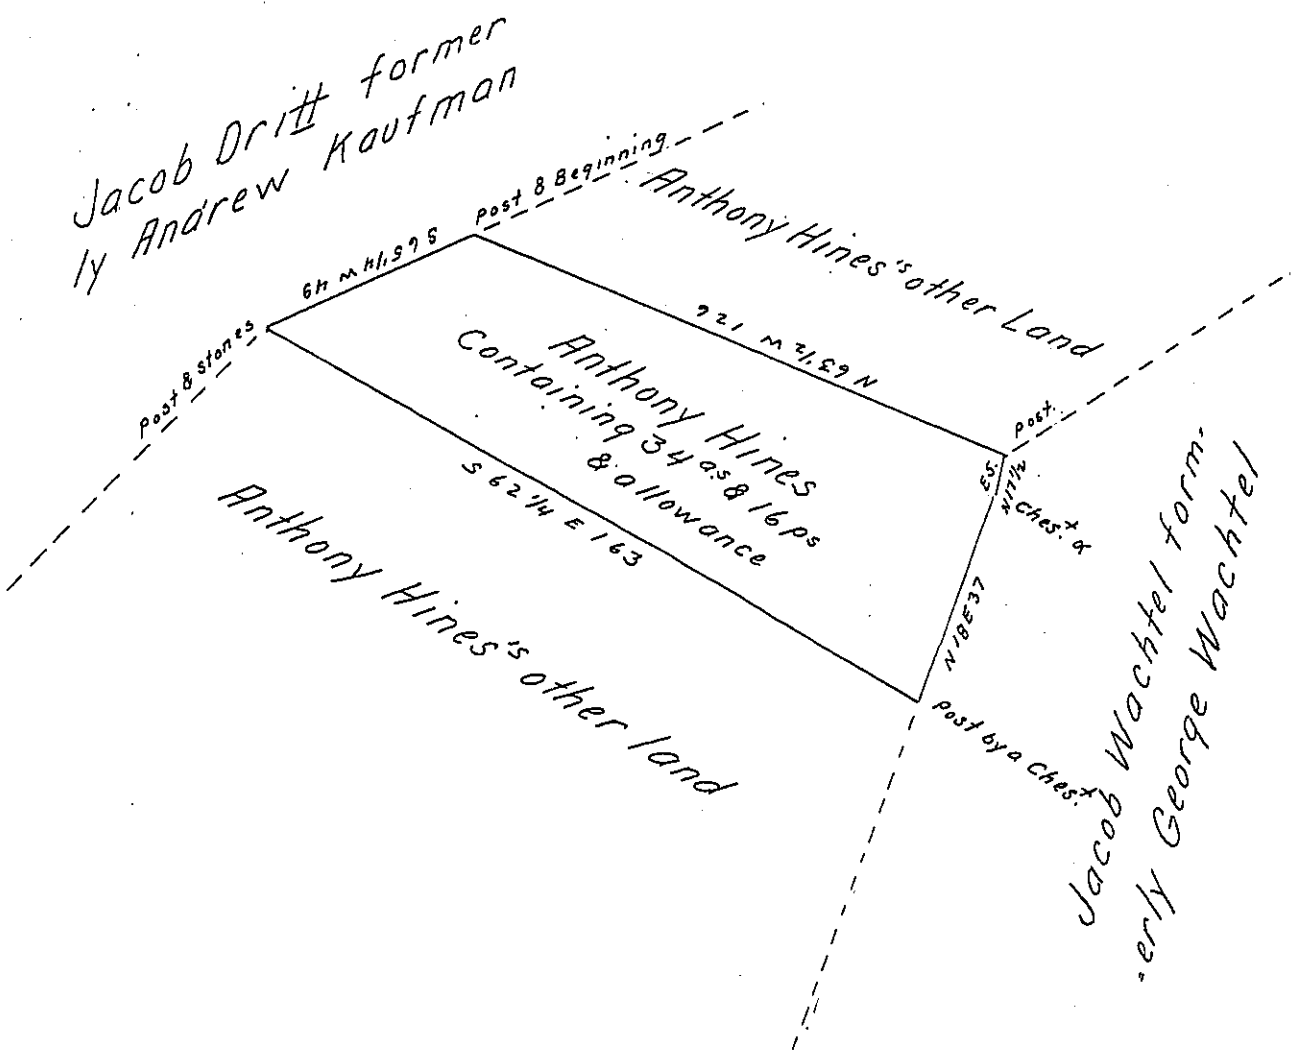 Jacob Dritt former
ly Andrew Kaufman
Post & Beginning
S 65 1/4 W 49
Post & stones
Anthony Hines's other Land
N 63 1/2 W 126
Anthony Hines
Containing 34 as & 16 ps
& allowance
S 62 1/4 E 163
Post.
N 11 1/2
E 5.
Chest. &
N 18 E 37
Post by a Chest.
Anthony Hines's other land
Jacob Wachtel form-
erly George Wachtel